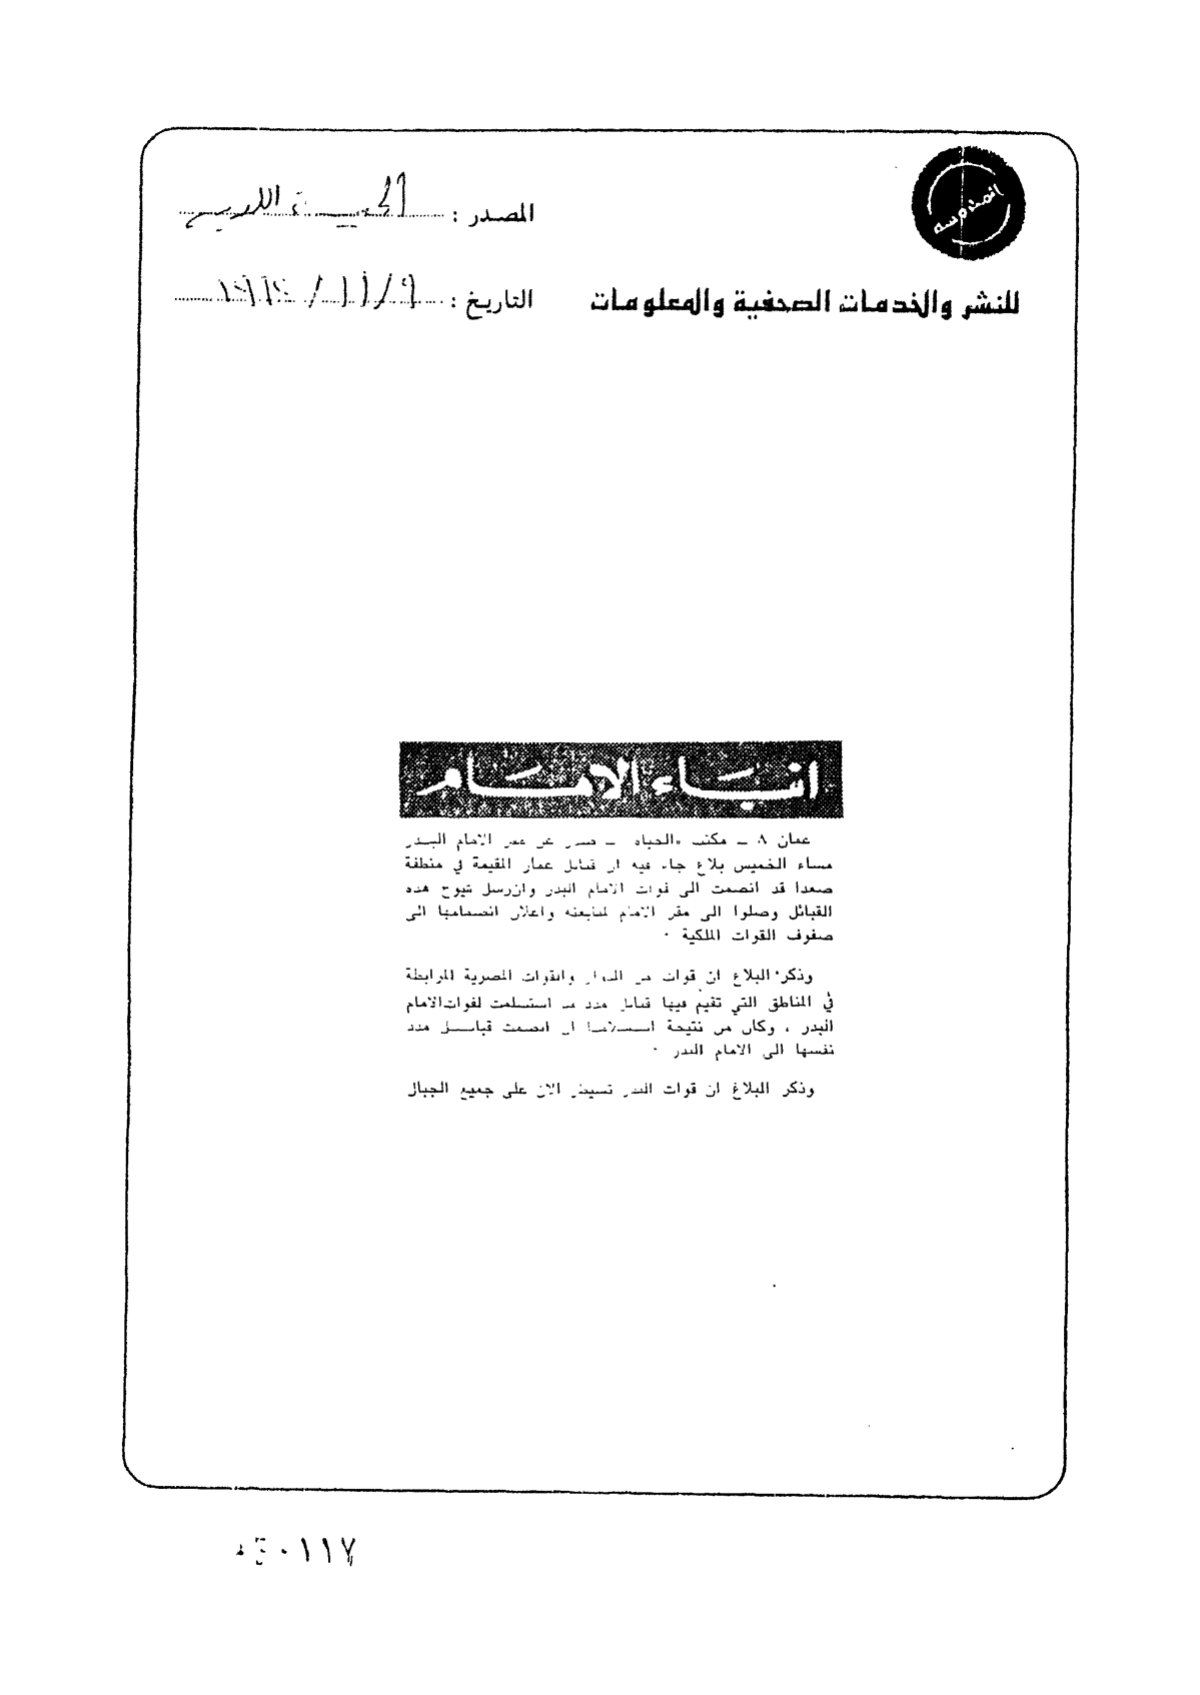 المصدر : الحيــاة اللندنية
التاريخ : ٩ / ١١ /
للنشر والخدمات الصحفية والمعلومات
انبــاء الامــام
عمان ٨ ــ مكتب «الحياة» ــ صدر عن مقر الامام البــدر
مساء الخميس بلاغ جاء فيه ان قبائل عمار المقيمة في منطقة
صعدا قد انضمت الى قوات الامام البدر وان شيوخ هذه
القبائل وصلوا الى مقر الامام لمبايعته واعلان انضمامها الى
صفوف القوات الملكية ٠
وذكر البلاغ ان قوات من والقوات المصرية المرابطة
في المناطق التي تقيم فيها قبائل قد استسلمت لقوات الامام
البدر ، وكان من نتيجة استسلامها ان انضمت قبائــل
نفسها الى الامام البدر ٠
وذكر البلاغ ان قوات البدر تسيطر الان على جميع الجبال
٠١١٧